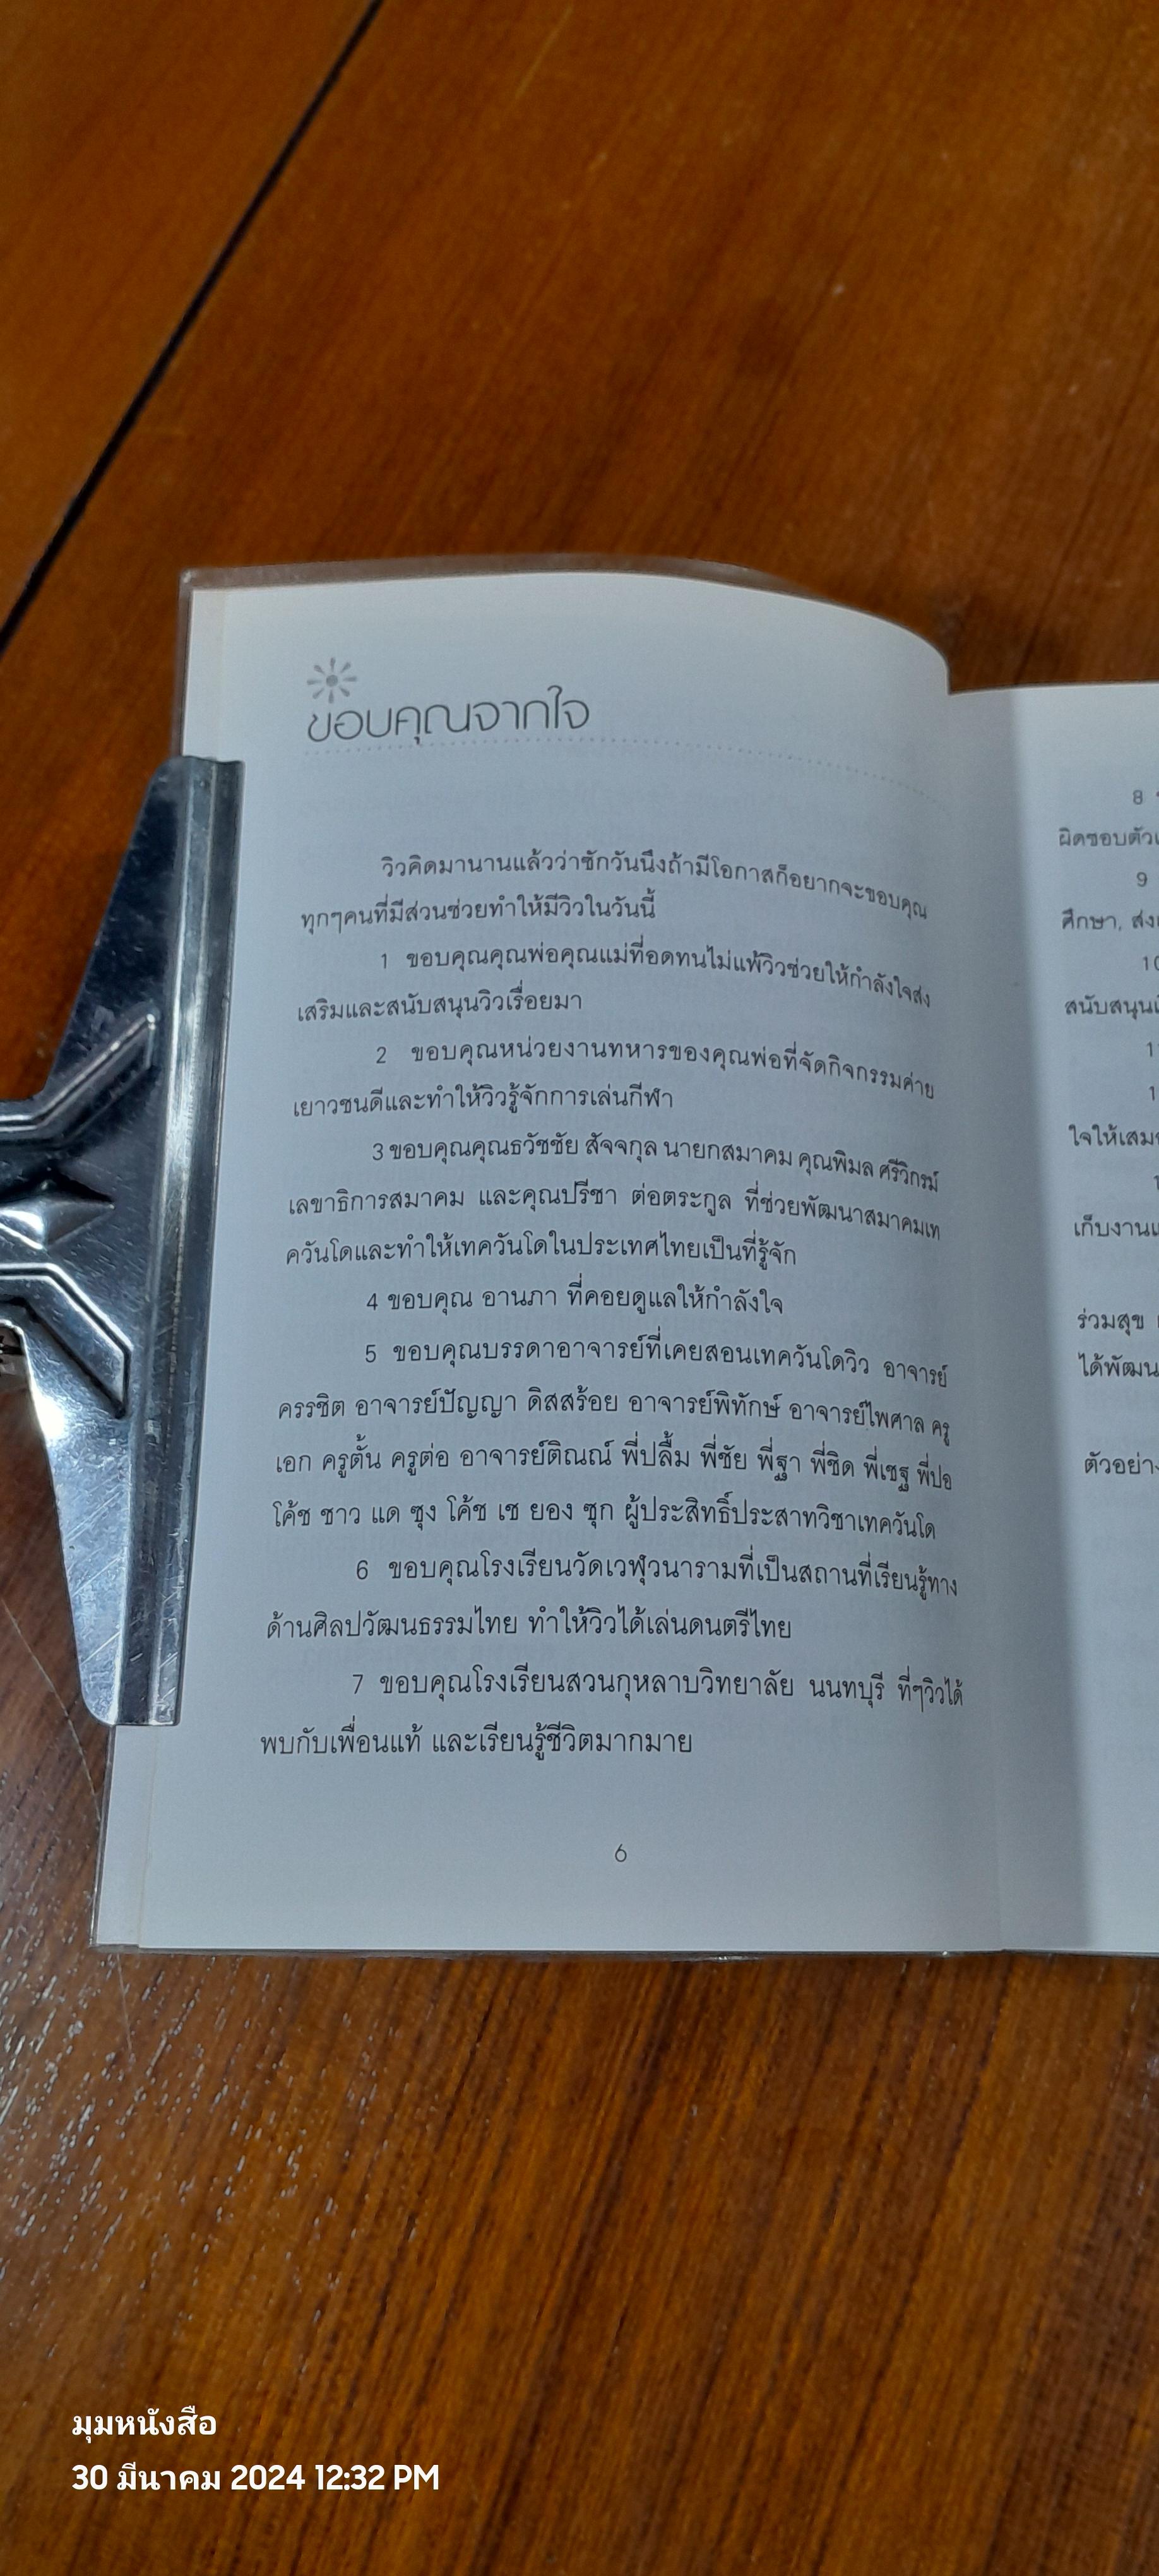 ขอบคุณจากใจ
วิวคิดมานานแล้วว่าซักวันนึงถ้ามีโอกาสก็อยากจะขอบคุณ
ทุกๆคนที่มีส่วนช่วยทำให้มีวิวในวันนี้
1 ขอบคุณคุณพ่อคุณแม่ที่อดทนไม่แพ้วิวช่วยให้กำลังใจส่ง
เสริมและสนับสนุนวิวเรื่อยมา
2 ขอบคุณหน่วยงานทหารของคุณพ่อที่จัดกิจกรรมค่าย
เยาวชนดีและทำให้วิวรู้จักการเล่นกีฬา
3 ขอบคุณคุณธวัชชัย สัจจกุล นายกสมาคม คุณพิมล ศรีวิกรม์
เลขาธิการสมาคม และคุณปรีชา ต่อตระกูล ที่ช่วยพัฒนาสมาคมเท
ควันโดและทำให้เทควันโดในประเทศไทยเป็นที่รู้จัก
4 ขอบคุณ อานภา ที่คอยดูแลให้กำลังใจ
5 ขอบคุณบรรดาอาจารย์ที่เคยสอนเทควันโดวิว อาจารย์
ครรชิต อาจารย์ปัญญา ดิสสร้อย อาจารย์พิทักษ์ อาจารย์ไพศาล ครู
เอก ครูตั้น ครูต่อ อาจารย์ติณณ์ พี่ปลื้ม พี่ชัย พี่ฐา พี่ชิด พี่เชฐ พี่ปอ
โค้ช ชาว แด ซุง โค้ช เช ยอง ซุก ผู้ประสิทธิ์ประสาทวิชาเทควันโด
6 ขอบคุณโรงเรียนวัดเวฬุวนารามที่เป็นสถานที่เรียนรู้ทาง
ด้านศิลปวัฒนธรรมไทย ทำให้วิวได้เล่นดนตรีไทย
7 ขอบคุณโรงเรียนสวนกุหลาบวิทยาลัย นนทบุรี ที่ๆวิวได้
พบกับเพื่อนแท้ และเรียนรู้ชีวิตมากมาย
6
8
ผิดชอบตัว
9
ศึกษา, ส่ง
10
สนับสนุน
ใจให้เสม
เก็บงาน
ร่วมสุข
ได้พัฒน
ตัวอย่าง
มุมหนังสือ
30 มีนาคม 2024 12:32 PM